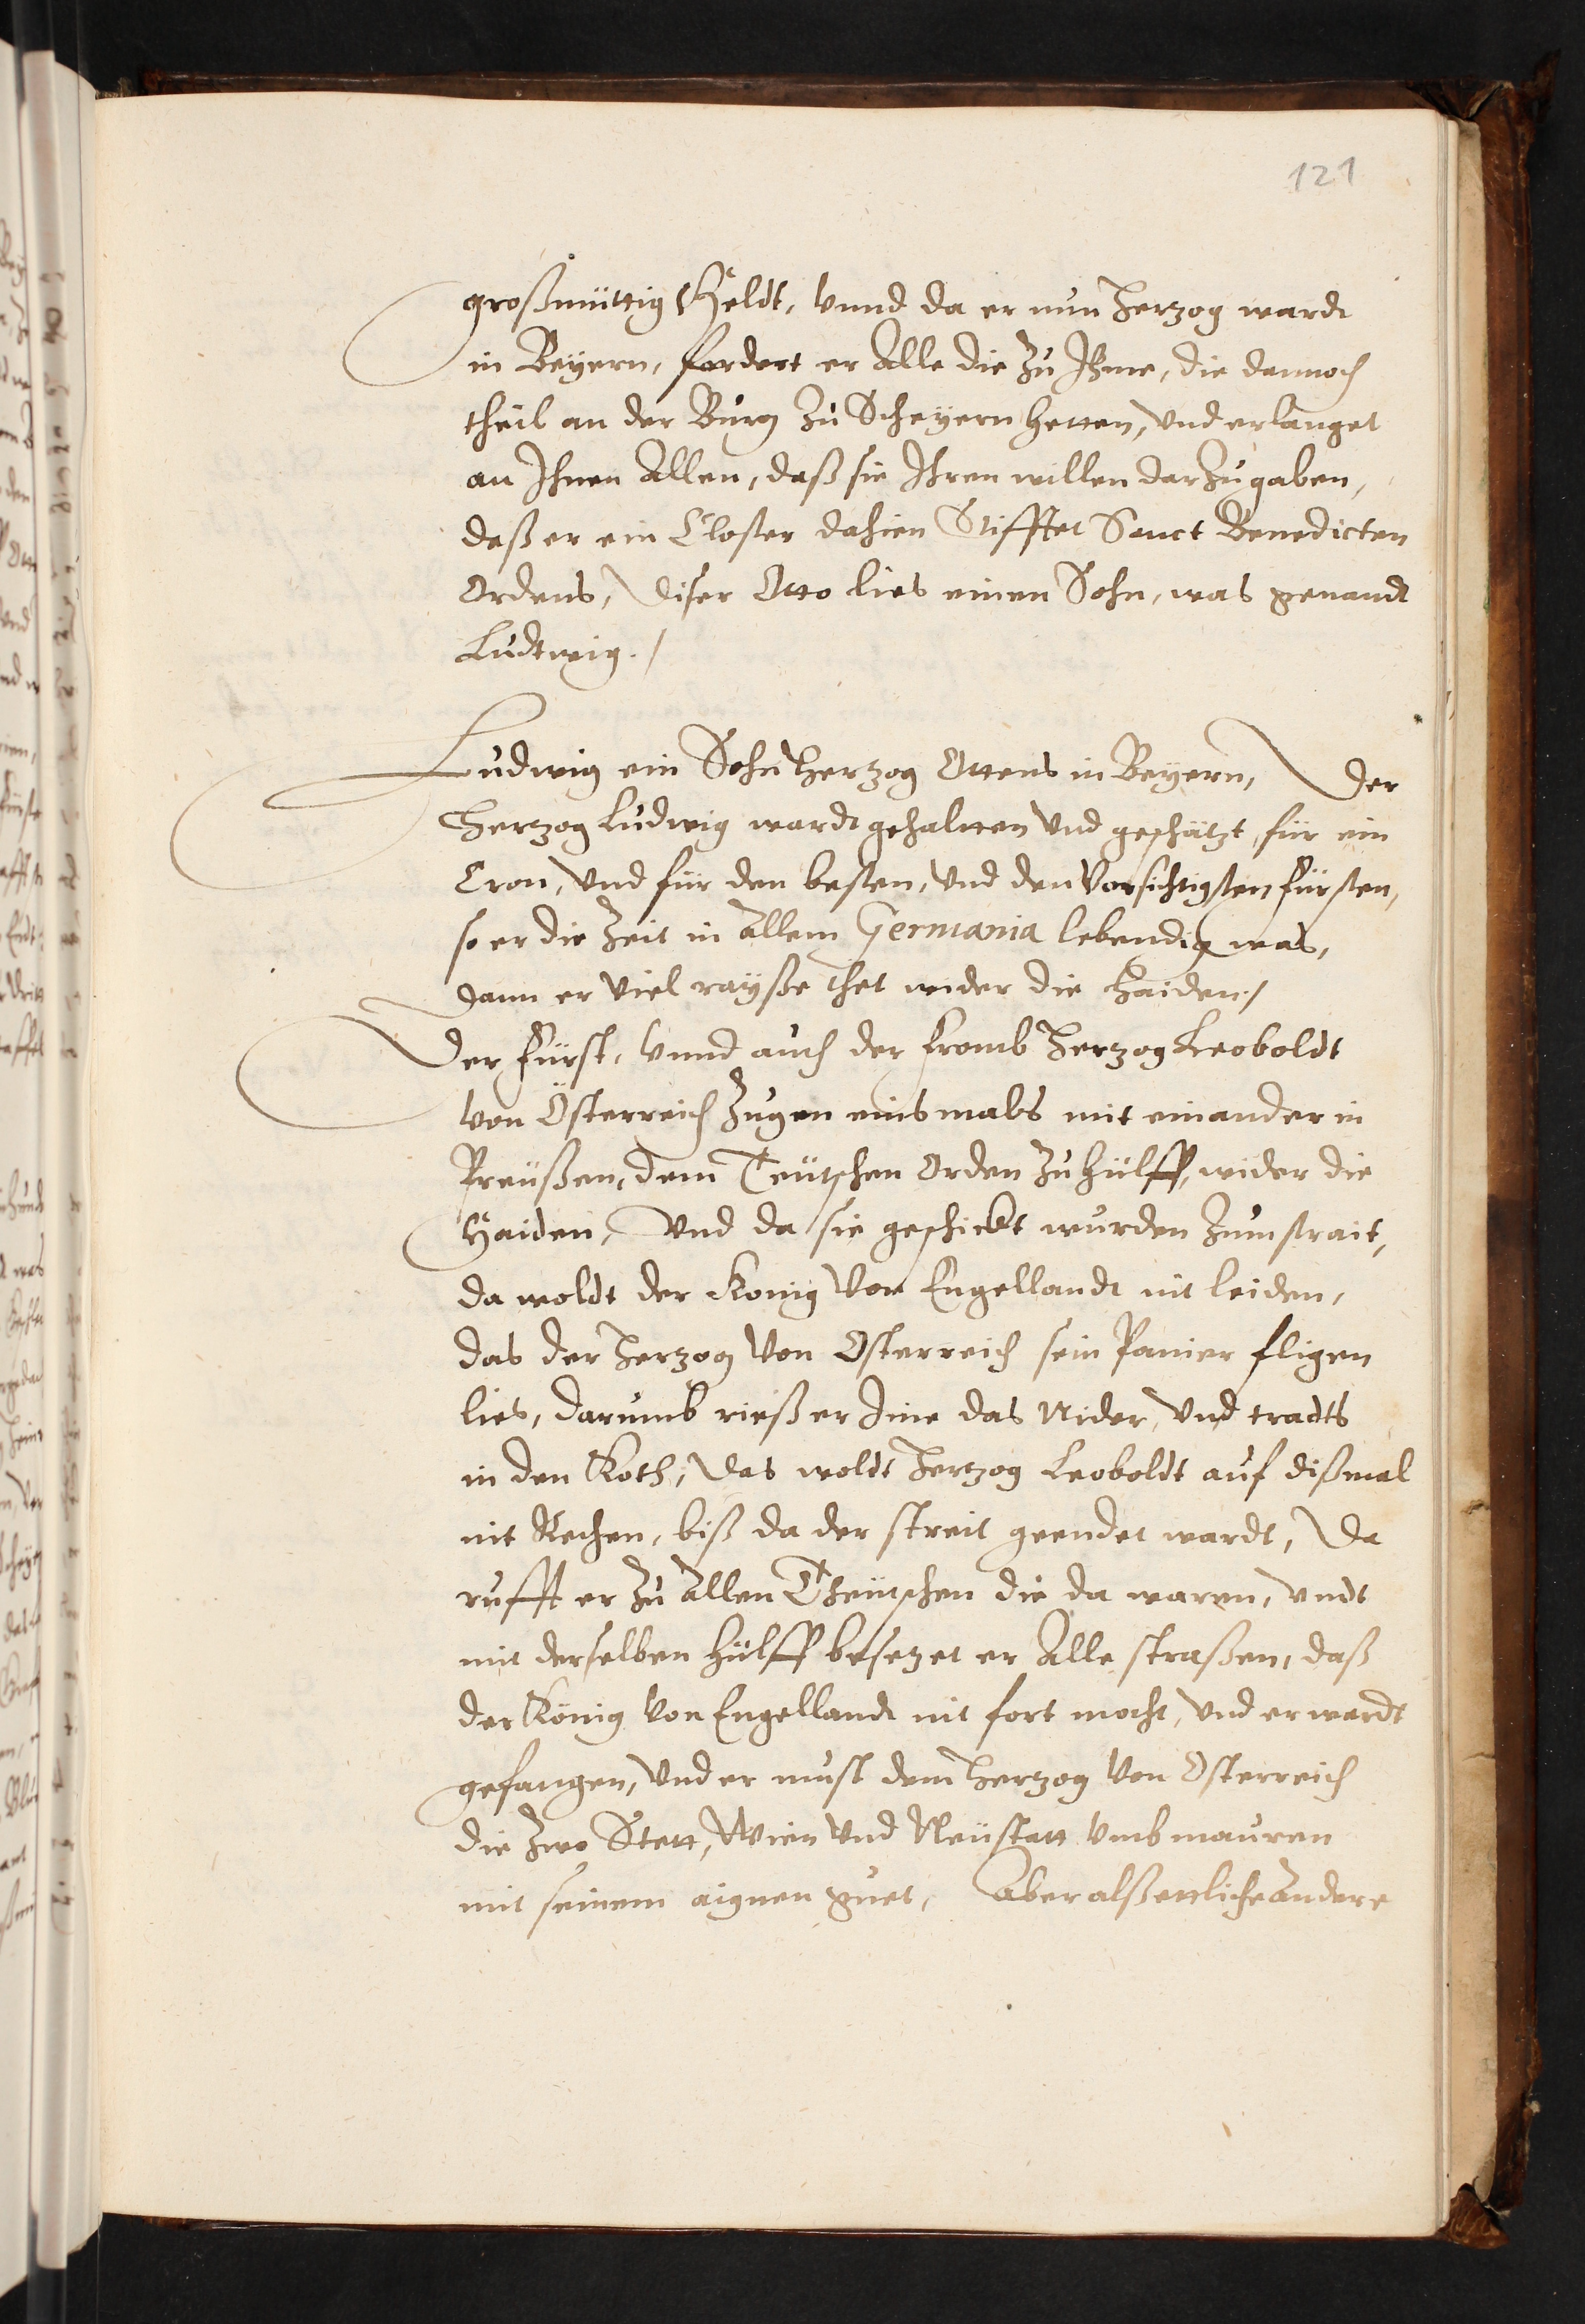 121
großmüttig Heldt, Vnnd da er nun Herzog wardt
in Beyern, fordert er Alle die Zu Ihme, die dannoch
theil an der Burg Zu Scheyern hetten, Vnd erlanget
an Ihnen Allen, daß sie Ihren willen darZu gaben,
daß er ein Closter dahien Stifftet Sanct Benedicten
Ordens, Diser Otto lies einen Sohn, was genandt
Ludtwig./
Ludwig ein Sohn Hertzog Ottens in Beyern, Der
Hertzog Ludwig wardt gehaltten Vnd geschätzt, für ein
Cron, Vnd für den besten, Vnd den Vorsichtigsten fürsten,
so er die Zeit in Allem Germania lebendig was,
Dann er Viel rayße thet wider die Haiden./
Der fürst, Vnnd auch der fromb Herzog Leoboldt
Von Österreich Zugen einsmals mit einander in
Preüßen, dem Teütschen Orden Zu Hülff, wider die
Haiden, Vnd da sie geschickt wurden Zum strait,
da woldt der Konig Von Engellandt nit leiden,
das der Herzog Von Osterreich sein Panier fligen
lies, darumb rieß er Ime das Nider, Vnd tradts
in den Koth, Das woldt Hertzog Leoboldt auf dißmal
nit Rechen, biß da der streit geendet wardt, Da
rufft er Zu Allen Theütschen die da waren, Vndt
mit derselben hülff besezet er Alle straßen, daß
der König Von Engellandt nit fort mocht, Vnd er wardt
gefangen, Vnd er must dem Hertzog Von Osterreich
die Zwo Stett, Wien Vnd Neüstatt Vmbmauren
mit seinem aignen guet, Aber alß ettliche Andere